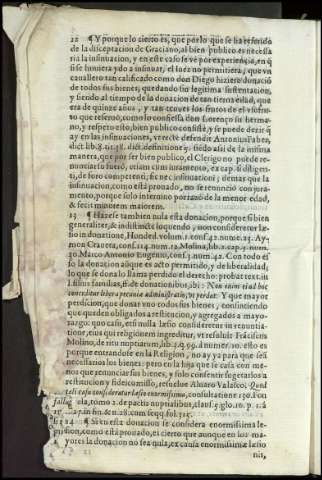 22 ¶ Y porque lo cierto es, que por lo que se ha referido
de la disceptacion de Graciano, al bien publico es necessa
ria la insinuacion, y en este caso se vè por experiencia, en q̃
si se huuiera ydo a insinuar, el Iuez no permitiera, que vn
cauallero tan calificado como don Diego hiziere donació
de todos sus bienes, quedando sin legitima sustentacion,
y siendo al tiempo de la donacion de tan tierna edad, que
era de quinze años, y tan cortos los frutos de el vsufru-
to que reseruò, como lo confiessa don Lorenço su herma-
no, y respeto esto, bien publico consiste, y se puede dezir q̃
ay en las insinuaciones, vt recte defendit Antonius Faber,
dict. lib. 8. tit. 38. dict. definitione 5. siẽdo assi de la misma
manera, que por ser bien publico, el Clerigo no puede re-
nunciar su fuero, etiam cum iuramento, ex cap. si diligen-
ti, de foro competenti; sic nec insinuationi; demas que la
insinuacion, como està prouado, no se renunciò con jura-
mento, porque solo interuino por razõ de la menor edad,
& fecit minorem maiorem.
23 ¶ Hazese tambien nula esta donacion, porque si bien
generaliter, & indistincte loquendo, non consideretur læ-
sio in donatione, Honded. volum. 1. conf. 42. nume. 23. Ay-
mon Craueta, conf. 114. num. 12. Molina, lib. 2. cap. 3. num.
20. Marco Antonio Eugenio, conf. 3. num. 42. Con todo es
so la donacion aũque es acto permitido, y de liberalidad,
lo que se dona lo llama perdido el derecho: probat text. in
l. filius familias, ff. de donationibus, ibi: Non enim ei ad hoc
conceditur libera peculij administratio, vt perdat. Y que mayor
perdicion, que donar vno todos sus bienes, consintiendo
que queden obligados a restitucion, y agregados a mayo-
razgo: quo casu, etsi nulla læsio consideretur in renuntia-
tione, eius qui religionem ingreditur, vt resoluit Frãcisco
Molino, de ritu nuptiarum, lib. 3. q. 99. nume. 10. esto es
porque entrandose en la Religion, no ay ya para que seã
necessarios los bienes: pero en la hija que se casa con me-
nos que renunciar sus bienes, y solo consentir sugetarlos a
restitucion y fideicomisso, resuelue Aluaro Valasco, Quod
tali casu consideratur læsio enormissima, consultatione 130. Fon
tanella, tomo 2. de pactis nuptialibus, clausul. 5. glo. 10. p. 1. à
num. 27. in fin. & n. 28. cum seqq. fol. 325.
24 ¶ Si en esta donacion se considera enormissima le-
sion, como està prouado, es cierto que aunque en los ma-
yores la donacion no sea nula, ex causa enormissimæ læsio
nis,